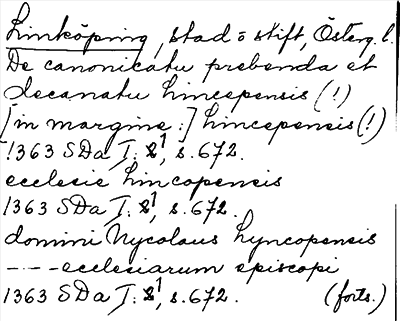 Linköping, stad o stift, Österg. l.
De canonicatu prebenda et
decanatu Lincepensis (!)
[in margine:] Lincepensis (!)
1363 SDa I: 1, s. 672.
ecclesie Lincopensis
1363 SDa I: 1, s. 672.
domini Nycolaus Lyncopensis
- - - ecclesiarum episcopi
1363 SDa I: 1, s. 672. (forts.)